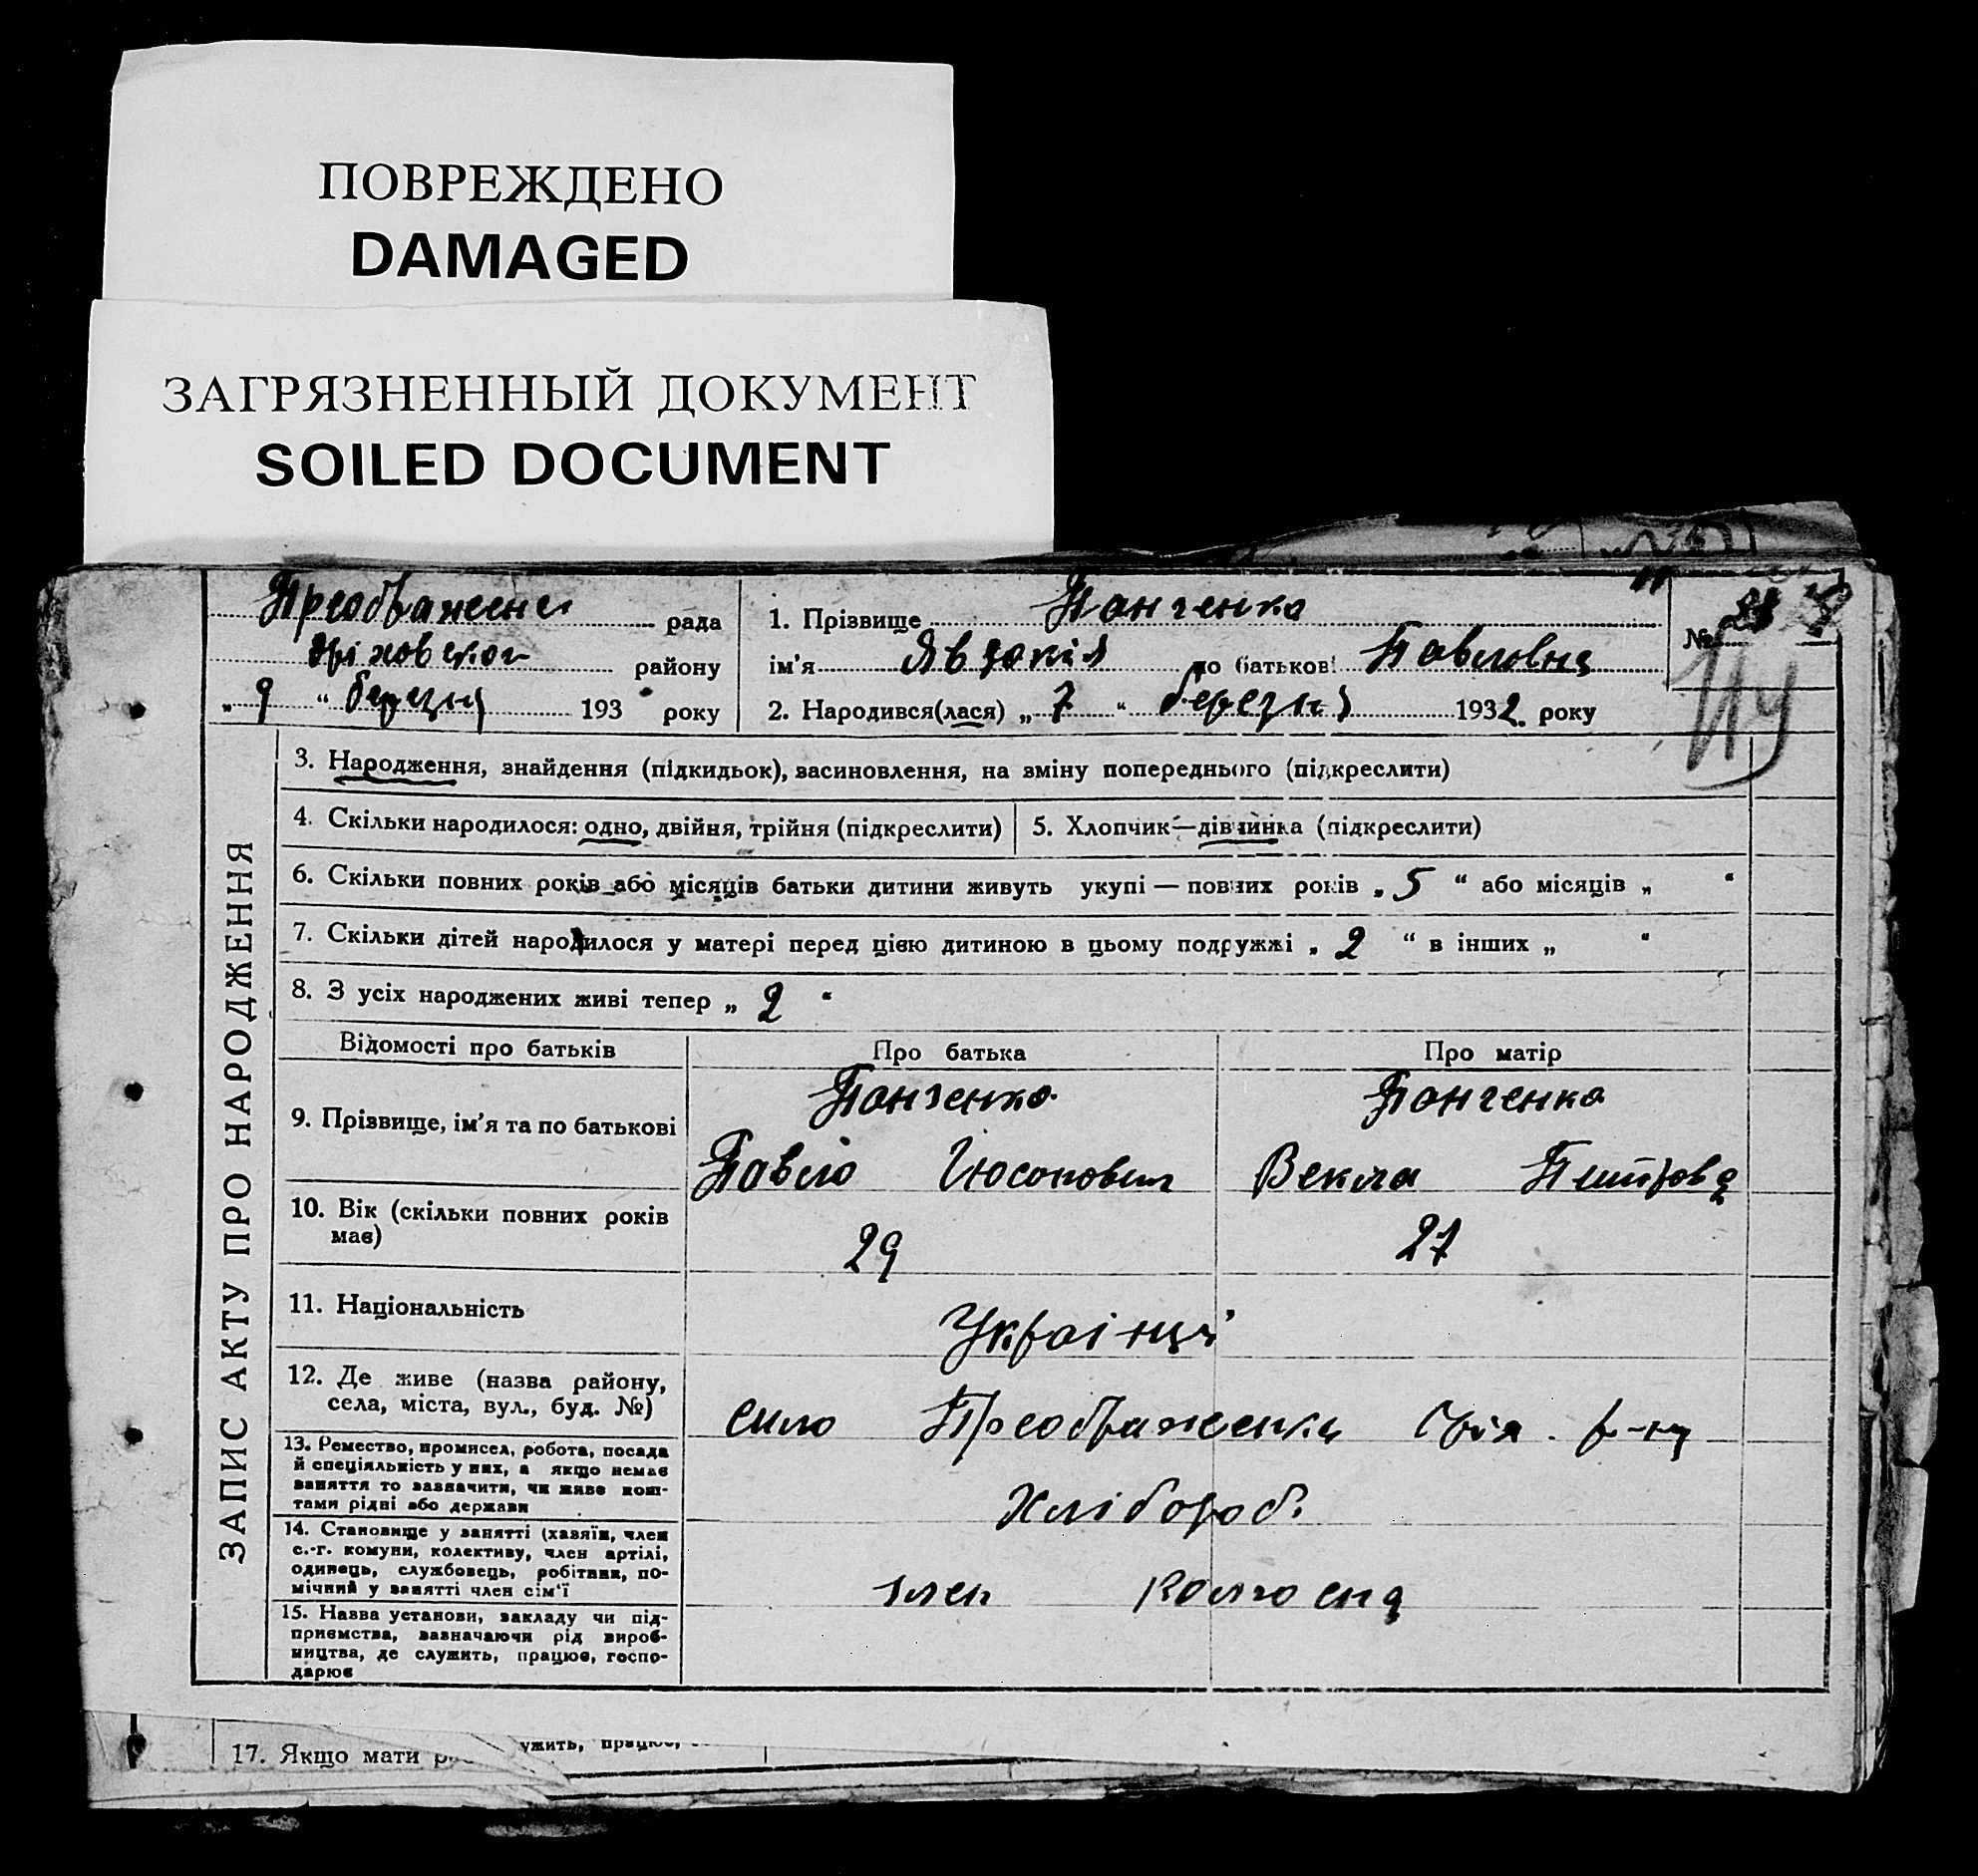 ПОВРЕЖДЕНО
DAMAGED
ЗАГРЯЗНЕННЫЙ ДОКУМЕНТ
SOILED DOCUMENT
рада
району
„ 9 “ березня 193 року
1. Прізвище Панченко
ім’я Явдокія по батькові Павловна
2. Народився(лася) „ 7 “ березня 1932 року
№
ЗАПИС АКТУ ПРО НАРОДЖЕННЯ
3. Народження, знайдення (підкидьок), засиновлення, на зміну попереднього (підкреслити)
4. Скільки народилося: одно, двійня, трійня (підкреслити)
5. Хлопчик—дівчинка (підкреслити)
6. Скільки повних років або місяців батьки дитини живуть укупі — повних років „ 5 “ або місяців „ “
7. Скільки дітей народилося у матері перед цією дитиною в цьому подружжі „ 2 “ в інших „ “
8. З усіх народжених живі тепер „ 2 “
Відомості про батьків
Про батька
Про матір
9. Прізвище, ім’я та по батькові
Панченко
Павло
Панченко
Векла
10. Вік (скільки повних років
має)
29
27
11. Національність
Українці
12. Де живе (назва району,
села, міста, вул., буд. №)
село Преображенка р-ну
13. Ремество, промисел, робота, посада
й спеціяльність у них, а якщо немає
заняття то зазначити, чи живе кош-
тами рідні або держави
Хлібороб
14. Становище у занятті (хазяїн, член
с.-г. комуни, колективу, член артілі,
одинець, службовець, робітник, по-
мічний у занятті член сім’ї
член колгоспа
15. Назва установи, закладу чи під-
приємства, зазначаючи рід вироб-
ництва, де служить, працює, госпо-
дарює
17. Якщо мати